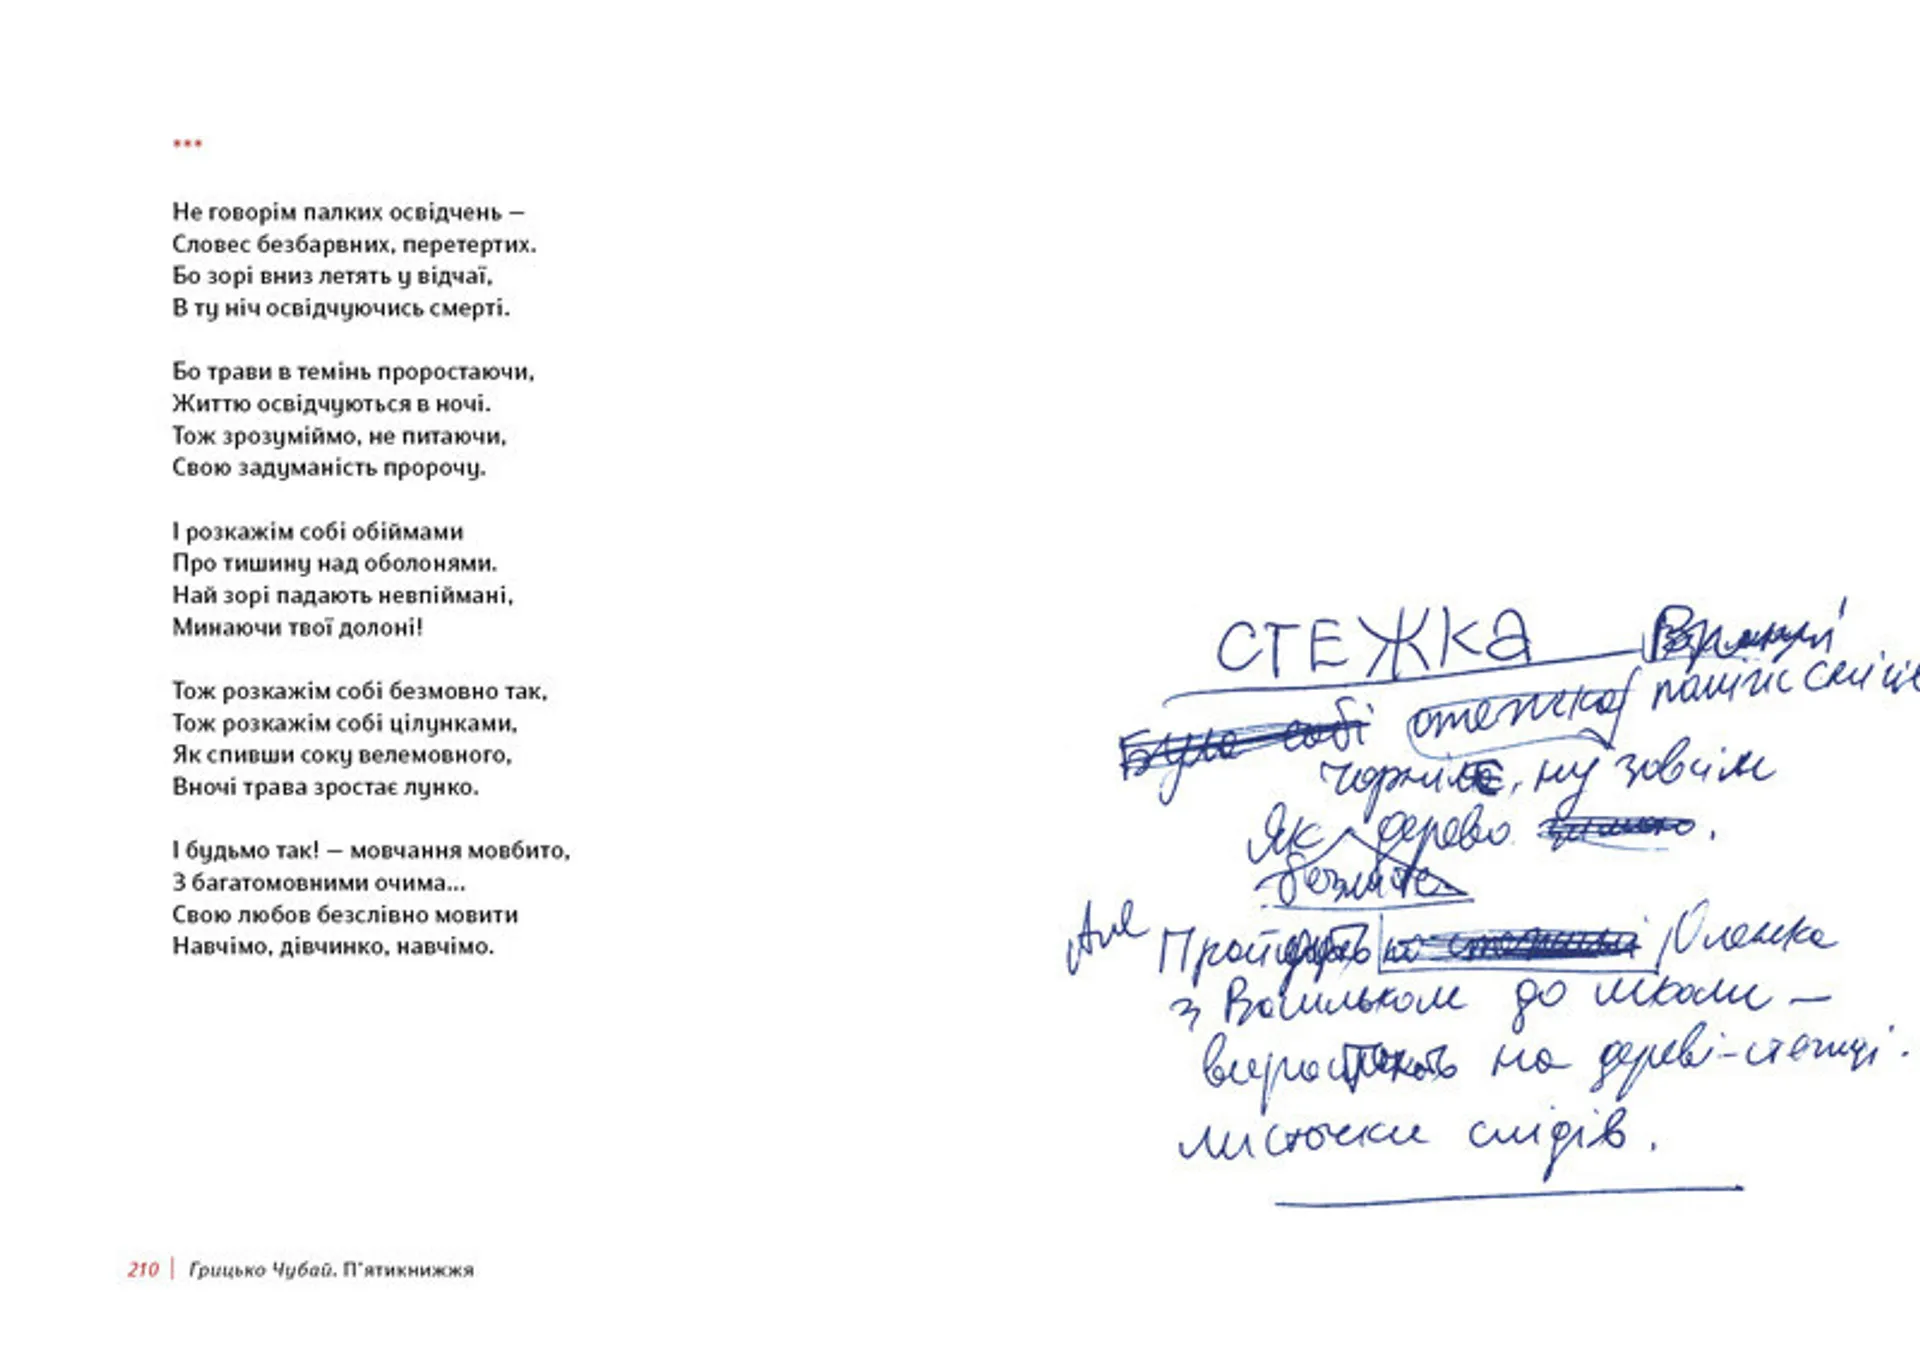 ***
Не говорім палких освідчень —
Словес безбарвних, перетертих.
Бо зорі вниз летять у відчаї,
В ту ніч освідчуючись смерті.
Бо трави в темінь проростаючи,
Життю освідчуються в ночі.
Тож зрозуміймо, не питаючи,
Свою задуманість пророчу.
І розкажім собі обіймами
Про тишину над оболонями.
Най зорі падають невпіймані,
Минаючи твої долоні!
Тож розкажім собі безмовно так,
Тож розкажім собі цілунками,
Як спивши соку велемовного,
Вночі трава зростає лунко.
І будьмо так! — мовчання мовбито,
З багатомовними очима...
Свою любов безслівно мовити
Навчімо, дівчинко, навчімо.
210 | Грицько Чубай. П'ятикнижжя
СТЕЖКА
собі стежка
, ну зовсім
Як дерево .
безлисте.
Але Пройдуть Оленка
з Васильком до школи —
виростають на дереві-стежці.
листочки слідів.